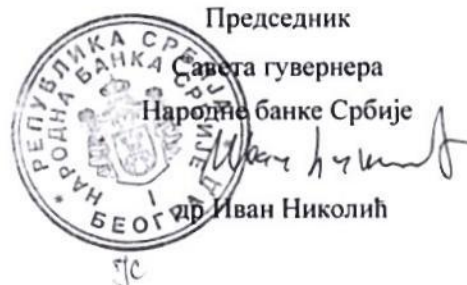 Председник
Савета гувернера
Народне банке Србије
др Иван Николић
* РЕПУБЛИКА СРБИЈА
НАРОДНА БАНКА СРБИЈЕ
I
БЕОГРАД